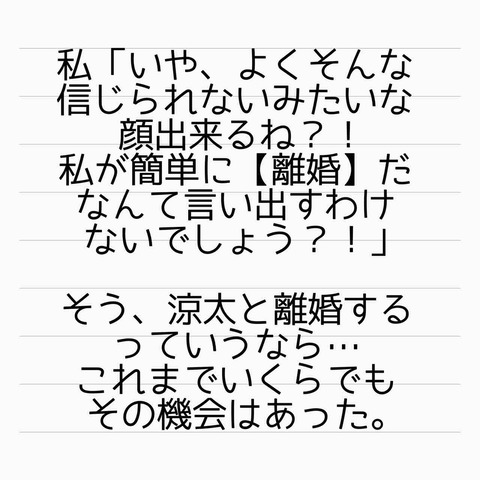 私「いや、よくそんな
信じられないみたいな
顔出来るね？！
私が簡単に【離婚】だ
なんて言い出すわけ
ないでしょう？！」
そう、涼太と離婚する
っていうなら…
これまでいくらでも
その機会はあった。